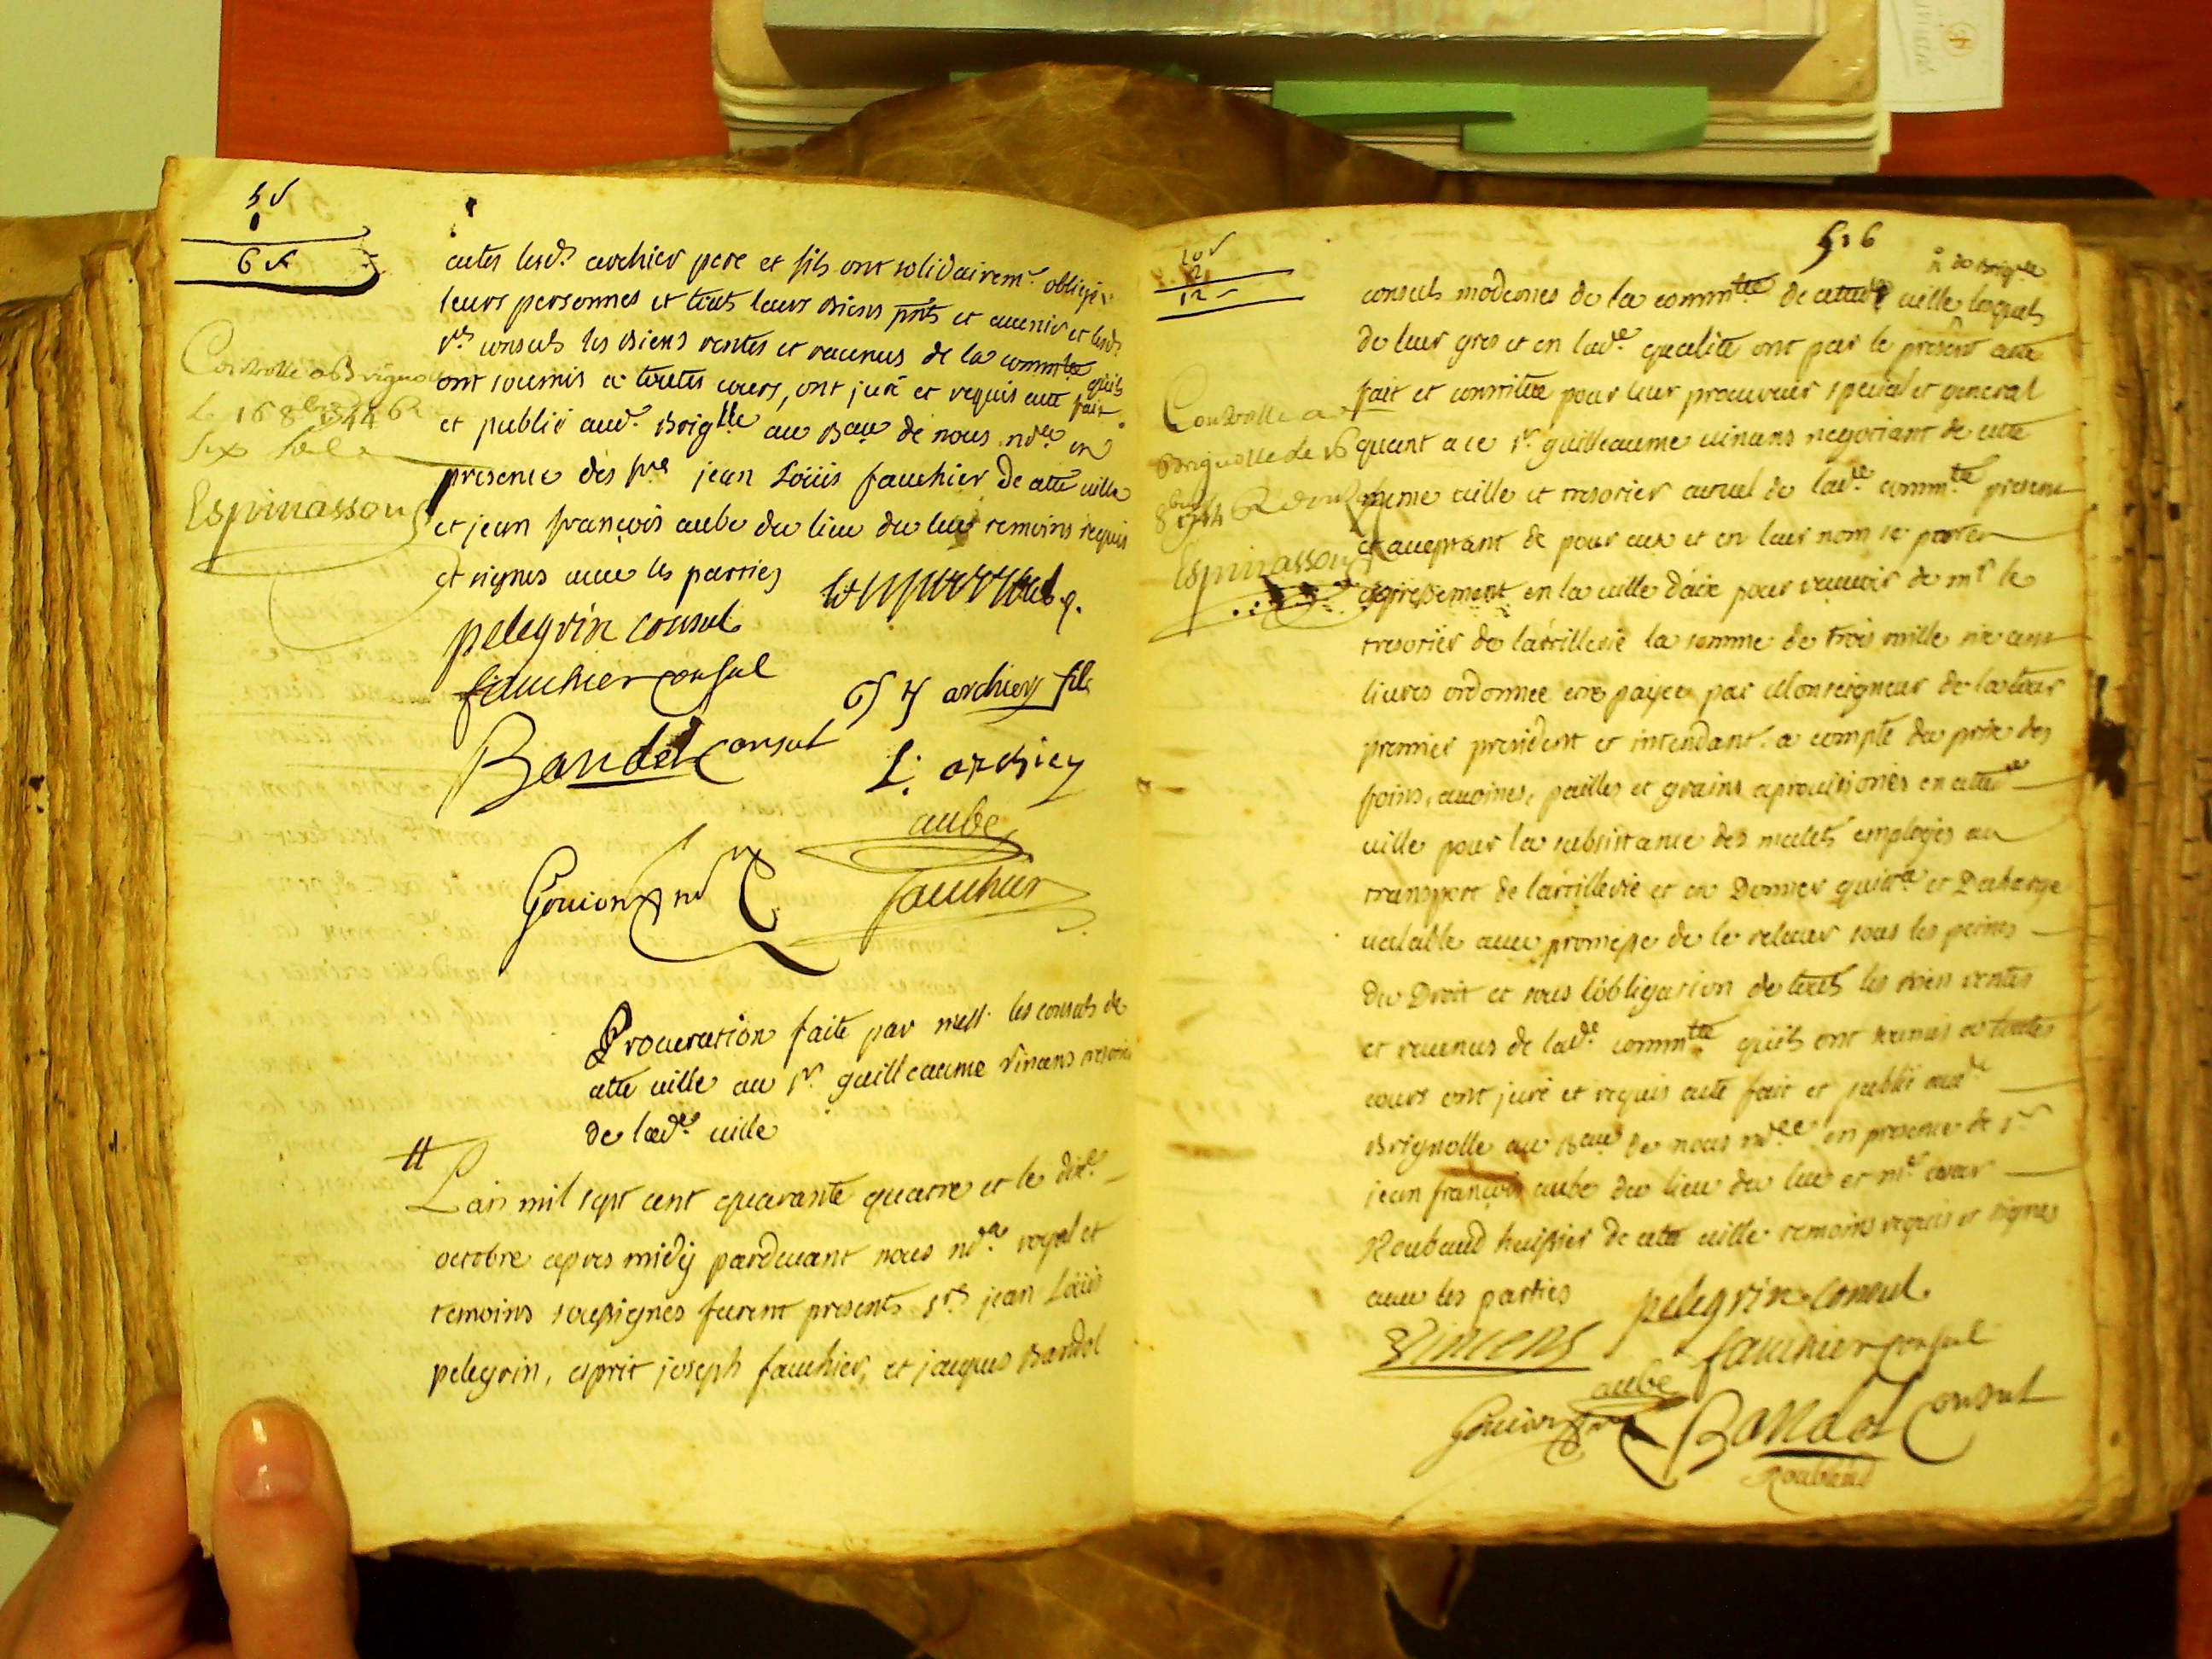 5 s
1
6 s
Controlle a Brignolle
Le 16 8bre 1744 R
Six sols
Espinassou
actes lesd. archier pere et fils ont solidairemt. obligé
leurs personnes et touts leurs biens pnts et avenir et lesd.
srs consuls les biens rentes et revenus de la commte quils
ont soumis a toutes cours, ont juré et requis acte fait
et publié aud. Briglle au Bau de nous nore en
presence des srs jean Loüis fauchier de cette ville
et jean françois aube du lieu du luc temoins requis
et signés avec les parties
pelegrin consul
fauchier consul
archier fils
Bandol Consul
L. archier
aube
Goüion nre
fauchier
Procuration faite par mess. les consuls de
cette ville au sr. guilleaume vinens tresorier
de lade. ville
Lan mil sept cent quarante quatre et le dixe.
octobre apres midÿ pardevant nous nore royal et
temoins soussignes furent presents srs jean Loüis
pelegrin, esprit joseph fauchier, et jaques Bandol
516
10 s
2
12 s
Controlle a
Brignolle le 16
8bre 1744 R
Espinassou
de Briglle
consuls modernes de la commte de cette ville lesquels
de leur gres et en lade. qualité ont par le présent acte
fait et constitué pour leur procureur special et general
quant a ce sr. guilleaume vinens negotiant de cette
meme ville et tresorier actuel de lade. commte. present
et acceptant de pour eux et en leur nom se porter
expressement en la ville daix pour recevoir de mr le
tresorier de lartillerie la somme de trois mille six cens
livres ordonnée etre payée par Monseigneur de latour
premier president et intendant a compte du prix des
foins, avoines, pailles et grains aprovisionés en cette
ville pour la subsistance des mulets employés au
transport de lartillerie et en Donner quitce et Decharge
valable avec promesse de le relever sous les peines
du Droit et sous lóbligation de touts les bien rentes
et revenus de lade. commte quils ont soumis a toutes
cours ont juré et requis acte fait et publié aud.
Brignolle au Bau de nous nore en presence de sr
jean françois aube du lieu du luc et me cesar
Roubaud huissier de cette ville temoins requis et signés
avec les parties
pelegrin Consul
Vinens
fauchier consul
aube
Goüion nre
Bandol Consul
Roubaud